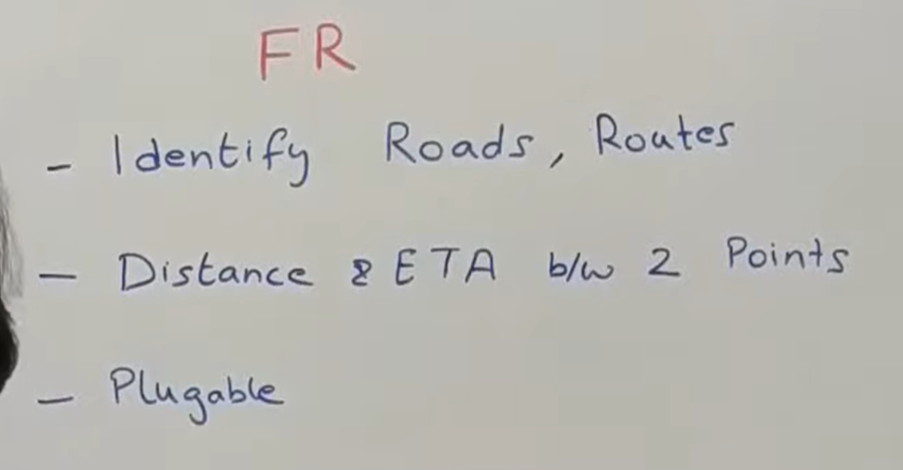 FR
- Identify Roads, Routes
- Distance & ETA b/w 2 Points
- Plugable